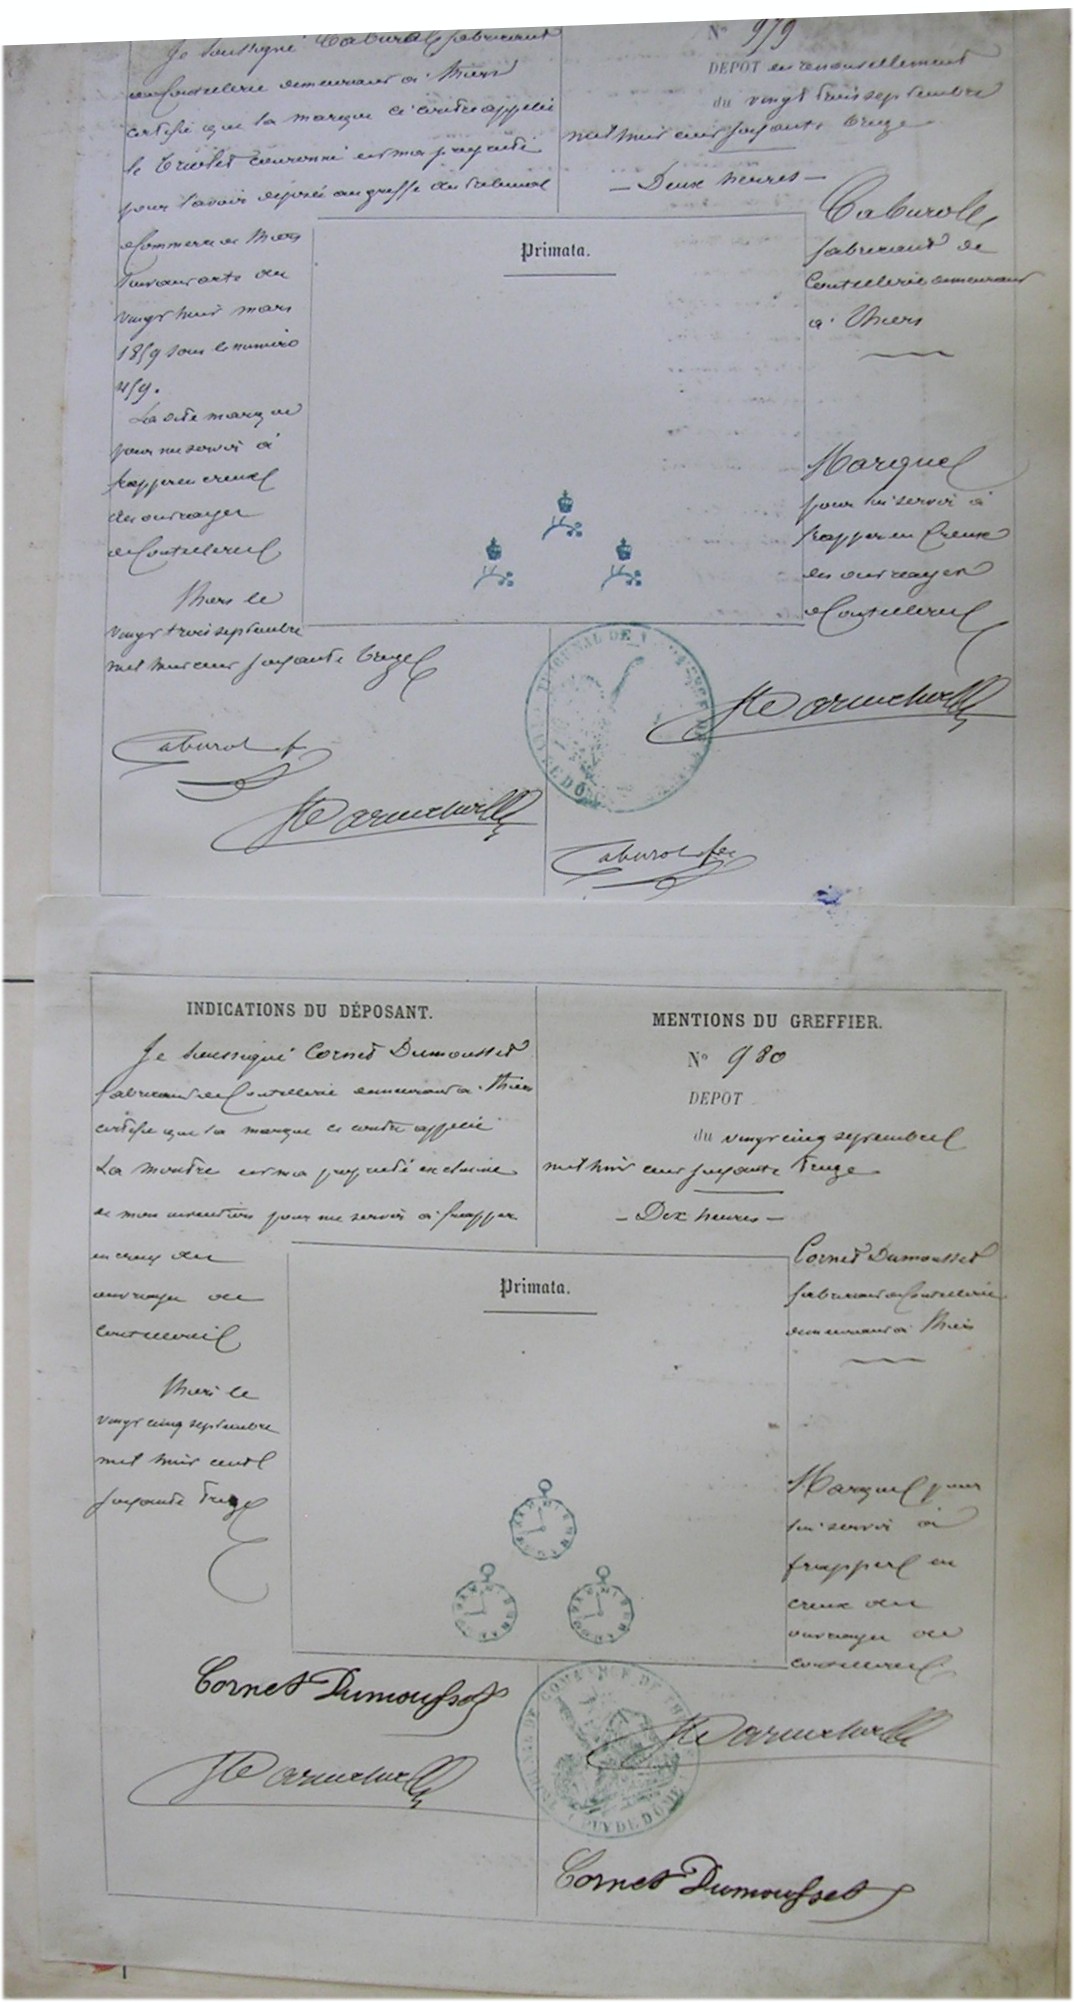 Je soussigné Caburol fabricant
de Coutellerie demeurant à Thiers
certifie que la marque ci contre appelée
le Triolet couronné est ma propriété
pour l'avoir déposée au greffe du tribunal
de Commerce de Thiers
vingt huit mars
1859 sous le numéro
459.
La dite marque
pour me servir à
frapper en creux
des ouvrages
de Coutellerie
Thiers le
vingt trois septembre
mil huit cent soixante treize
Caburol
N° 979
DEPOT en renouvellement
du vingt trois septembre
mil huit cent soixante treize
— Deux heures —
Primata.
Caburol
fabricant de
Coutellerie demeurant
à Thiers
Marque
pour lui servir à
frapper en Creux
des ouvrages
de Coutellerie
Caburol
INDICATIONS DU DÉPOSANT.
Je soussigné Cornet Dumousset
fabricant de Coutellerie demeurant à Thiers
certifie que la marque ci contre appelée
La montre est ma propriété exclusive
de mon invention pour me servir à frapper
en creux des
ouvrages de
coutellerie
Thiers le
vingt cinq septembre
mil huit cent
soixante treize
Cornet Dumousset
MENTIONS DU GREFFIER.
N° 980
DEPOT
du vingt cinq septembre
mil huit cent soixante treize
— Dix heures —
Primata.
Cornet Dumousset
fabricant de Coutellerie
demeurant à Thiers
Marque pour
lui servir à
frapper en
creux des
ouvrages de
coutellerie
TRIBUNAL DE COMMERCE DE THIERS
PUY DE DÔME
Cornet Dumousset